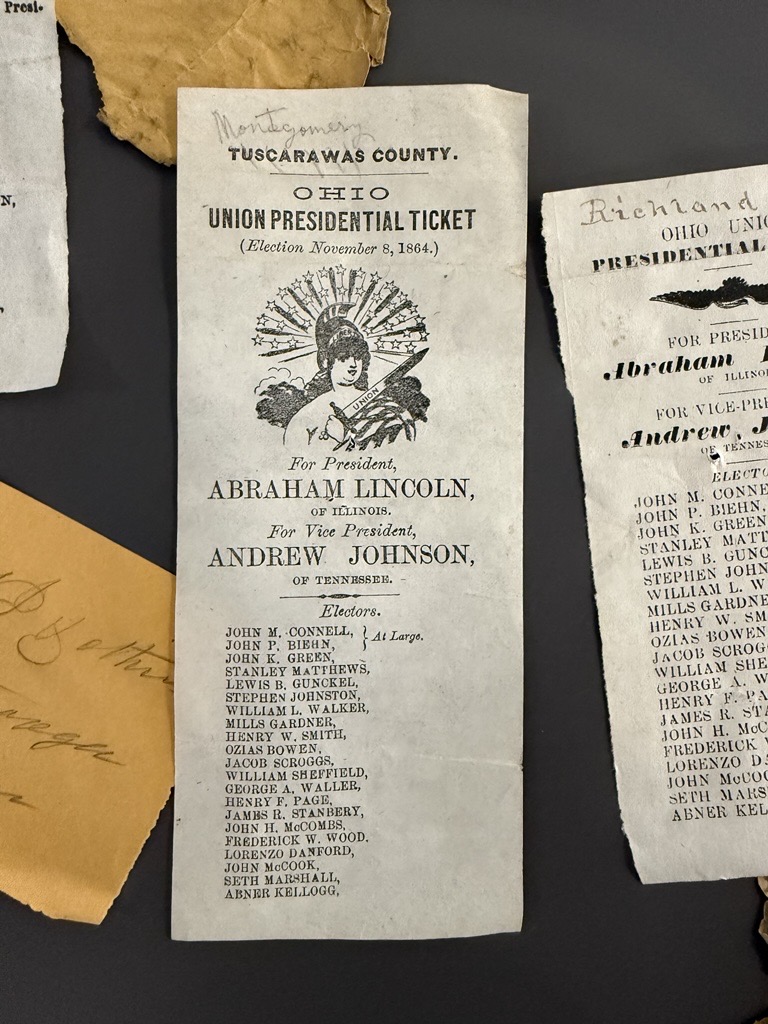 Presi-
N,
Montgomery
TUSCARAWAS COUNTY.
OHIO
UNION PRESIDENTIAL TICKET
(Election November 8, 1864.)
UNION
For President,
ABRAHAM LINCOLN,
OF ILLINOIS.
For Vice President,
ANDREW JOHNSON,
OF TENNESSEE.
Electors.
JOHN M. CONNELL, } At Large.
JOHN P. BIEHN,
JOHN K. GREEN,
STANLEY MATTHEWS,
LEWIS B. GUNCKEL,
STEPHEN JOHNSTON,
WILLIAM L. WALKER,
MILLS GARDNER,
HENRY W. SMITH,
OZIAS BOWEN,
JACOB SCROGGS,
WILLIAM SHEFFIELD,
GEORGE A. WALLER,
HENRY F. PAGE,
JAMES R. STANBERY,
JOHN H. McCOMBS,
FREDERICK W. WOOD,
LORENZO DANFORD,
JOHN McCOOK,
SETH MARSHALL,
ABNER KELLOGG,
Richland
OHIO UNIO
PRESIDENTIAL
FOR PRESID
Abraham
OF ILLINO
FOR VICE-PRE
Andrew J
OF TENNES
ELECTO
JOHN M. CONNE
JOHN P. BIEHN,
JOHN K. GREEN
STANLEY MATT
LEWIS B. GUNC
STEPHEN JOHN
WILLIAM L. W
MILLS GARDNE
HENRY W. SM
OZIAS BOWEN
JACOB SCROGG
WILLIAM SHE
GEORGE A. W
HENRY F. PA
JAMES R. STA
JOHN H. McC
FREDERICK W
LORENZO DA
JOHN McCOO
SETH MARS
ABNER KEL